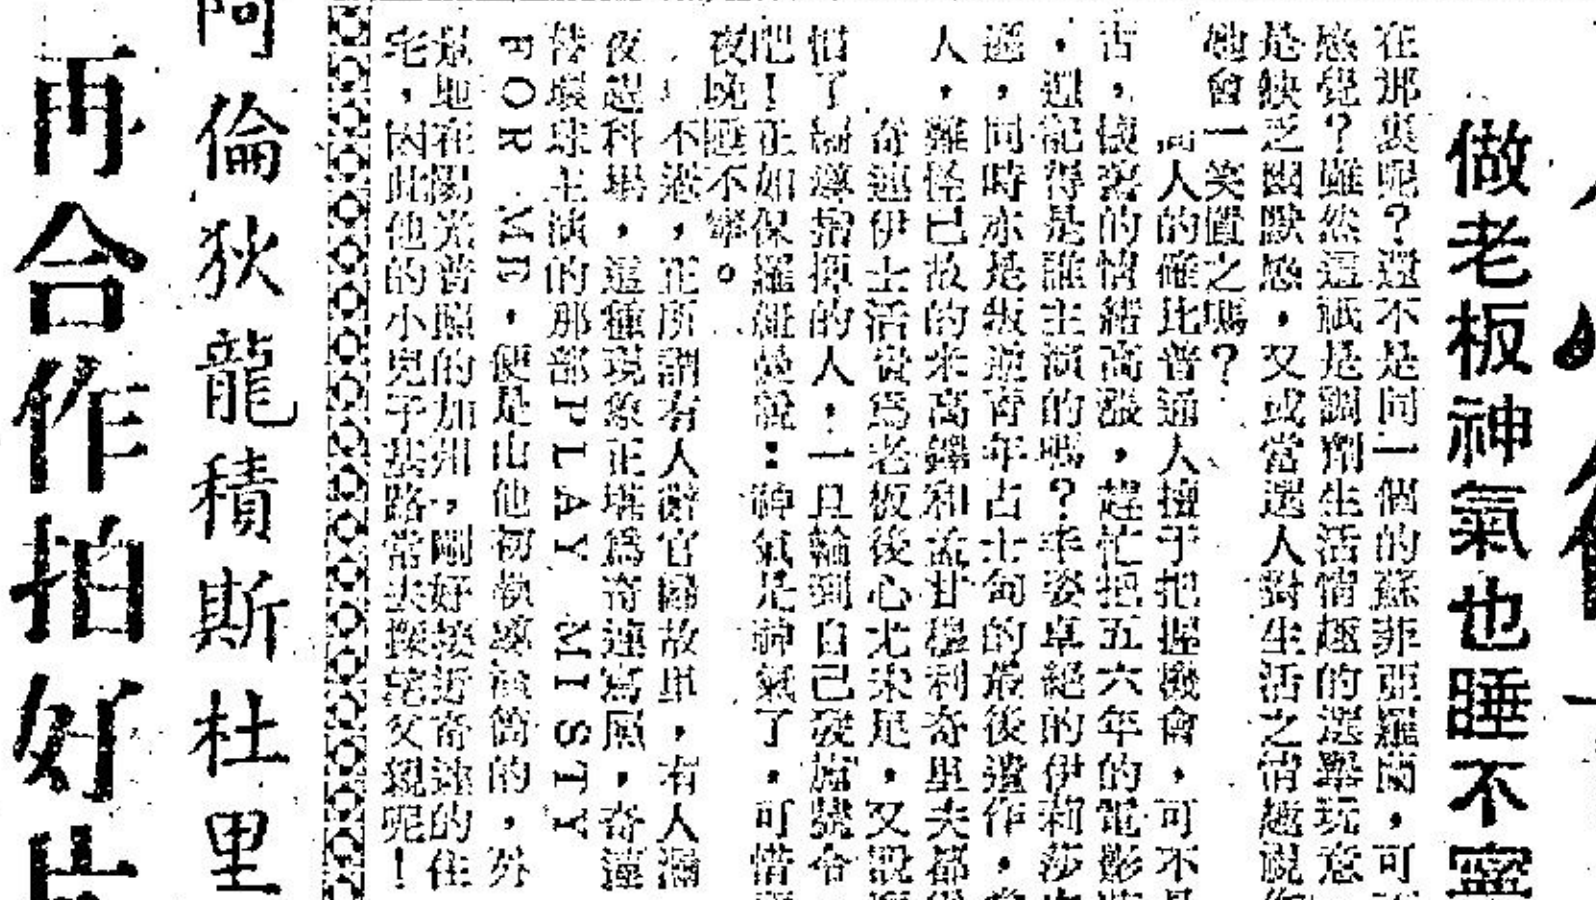 做老板神氣也睡不寧
在那裏呢？還不是同一個的蘇菲亞羅蘭，可
感覺？雖然這祇是調劑生活情趣的選舉玩意
是缺乏幽默感，又或當選人對生活之情趣視
她會一笑置之嗎？
高人的確比普通人擅于把握機會，可不
古，懷舊的情緒高漲，趕忙把五六年的電影
，還記得是誰主演的嗎？丰姿卓絕的伊莉莎
遜，同時亦是叛逆青年占士甸的最後遺作，
人，難怪已故的米高鐸和孟甘穆利奇里夫都
奇連伊士活貴爲老板後心尤未足，又設
慣了歸導指揮的人，一旦輪到自己發施號令
吧！正如保羅紐曼說：神氣是神氣了，可惜
夜晚睡不寧。
不過，正所謂有人辭官歸故里，有人漏
夜趕科場，這種現象正堪爲奇連寫照，奇連
替環球主演的那部PLAY MISTY
FOR ME，便是由他初執導演筒的，外
景地在陽光普照的加州，剛好接近奇連的住
宅，因此他的小兒子基路常去探望父親呢！
阿倫狄龍積斯杜里
再合作拍好片